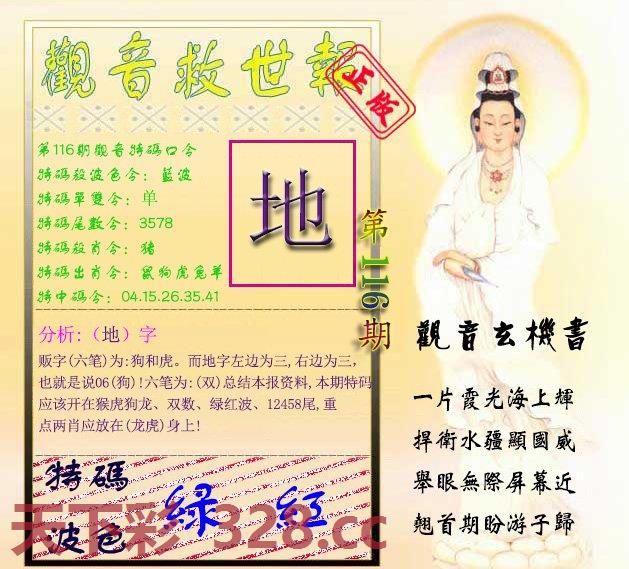 觀音救世報
正版
第116期觀音特碼口令
特碼殺波色令：藍波
特碼單雙令：单
特碼尾數令：3578
特碼殺肖令：豬
特碼出肖令：鼠狗虎兔羊
特中碼令：04.15.26.35.41
地
第116期
分析:（地）字
贩字(六笔)为:狗和虎。而地字左边为三,右边为三,
也就是说06(狗)!六笔为:(双)总结本报资料,本期特码
应该开在猴虎狗龙、双数、绿红波、12458尾,重
点两肖应放在(龙虎)身上!
特碼
波色
绿 红
天下彩 328.cc
觀音玄機書
一片霞光海上輝
捍衛水疆顯國威
舉眼無際屏幕近
翹首期盼游子歸